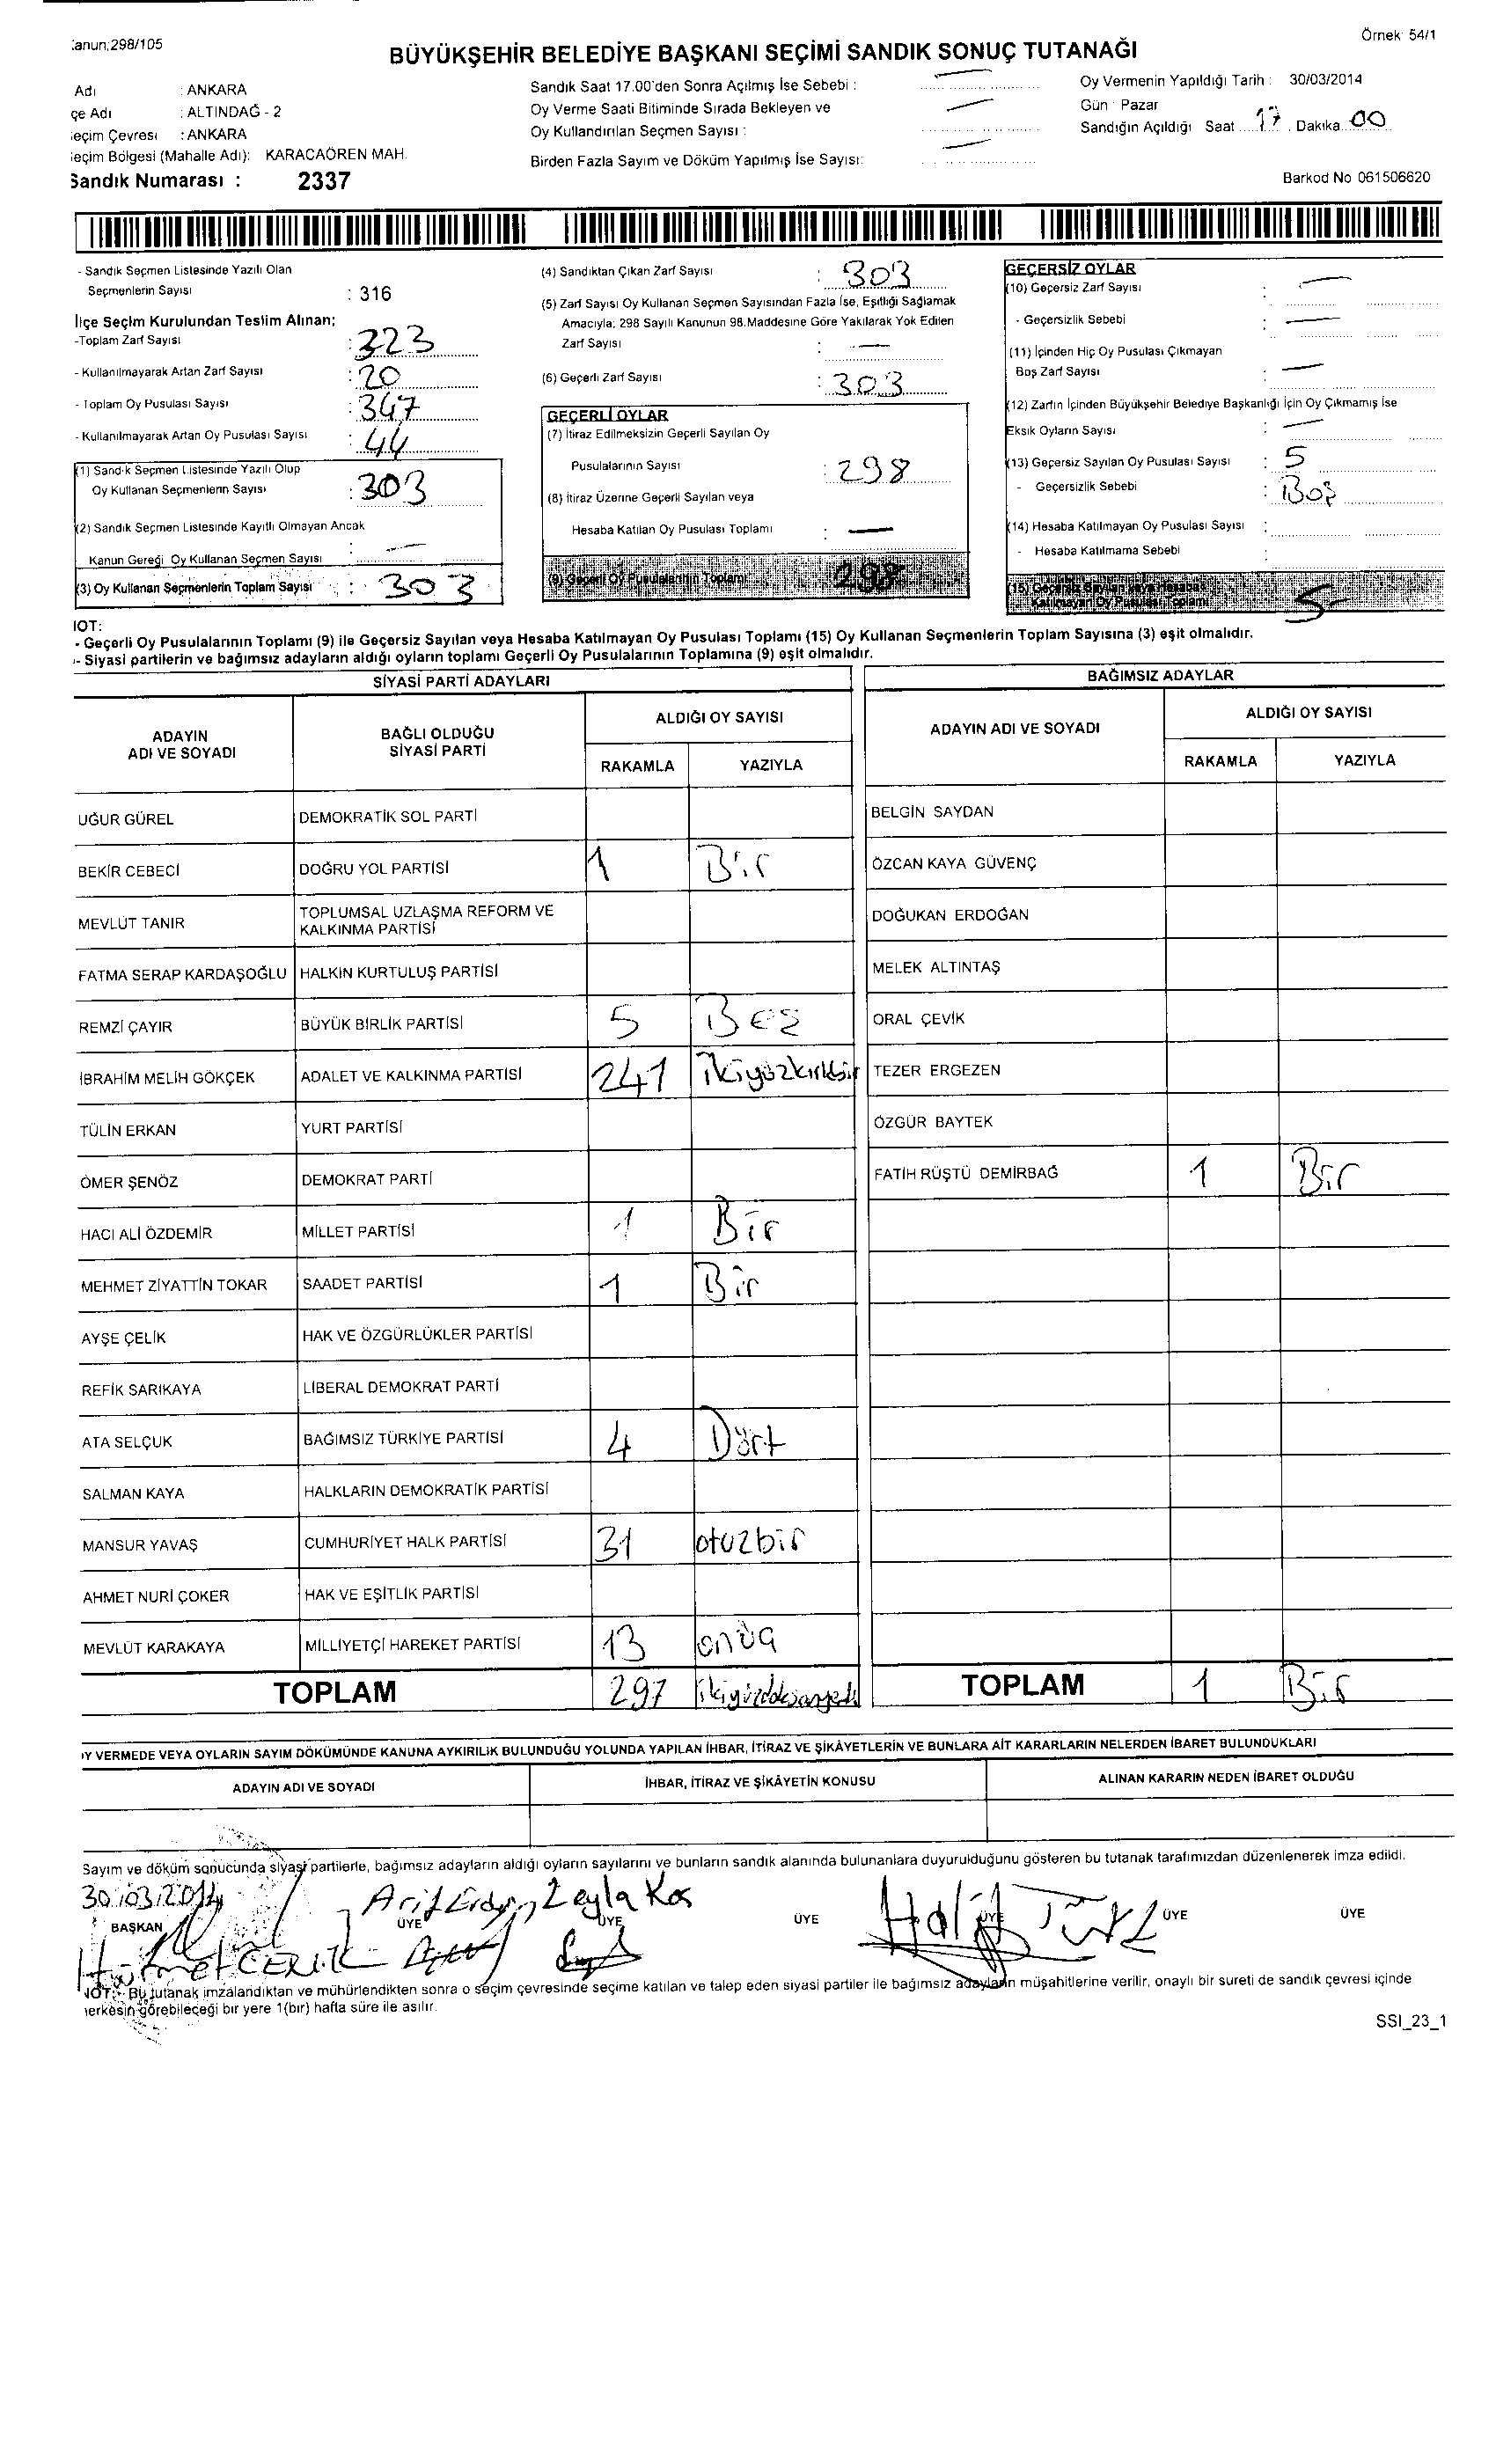 :anun:298/105
Örnek: 54/1
BÜYÜKŞEHİR BELEDİYE BAŞKANI SEÇİMİ SANDIK SONUÇ TUTANAĞI
Adı : ANKARA
çe Adı : ALTINDAĞ - 2
eçim Çevresi : ANKARA
eçim Bölgesi (Mahalle Adı): KARACAÖREN MAH.
Sandık Numarası : 2337
Sandık Saat 17.00'den Sonra Açılmış İse Sebebi :
Oy Verme Saati Bitiminde Sırada Bekleyen ve
Oy Kullandırılan Seçmen Sayısı :
Birden Fazla Sayım ve Döküm Yapılmış İse Sayısı:
Oy Vermenin Yapıldığı Tarih : 30/03/2014
Gün : Pazar
Sandığın Açıldığı Saat 17 Dakika 00
Barkod No 061506620
- Sandık Seçmen Listesinde Yazılı Olan
Seçmenlerin Sayısı : 316
İlçe Seçim Kurulundan Teslim Alınan:
-Toplam Zarf Sayısı : 323
- Kullanılmayarak Artan Zarf Sayısı : 20
- Toplam Oy Pusulası Sayısı : 347
- Kullanılmayarak Artan Oy Pusulası Sayısı : 44
(1) Sandık Seçmen Listesinde Yazılı Olup
Oy Kullanan Seçmenlerin Sayısı : 303
(2) Sandık Seçmen Listesinde Kayıtlı Olmayan Ancak
Kanun Gereği Oy Kullanan Seçmen Sayısı : —
(3) Oy Kullanan Seçmenlerin Toplam Sayısı : 303
(4) Sandıktan Çıkan Zarf Sayısı : 303
(5) Zarf Sayısı Oy Kullanan Seçmen Sayısından Fazla İse, Eşitliği Sağlamak
Amacıyla; 298 Sayılı Kanunun 98.Maddesine Göre Yakılarak Yok Edilen
Zarf Sayısı : —
(6) Geçerli Zarf Sayısı : 303
GEÇERLİ OYLAR
(7) İtiraz Edilmeksizin Geçerli Sayılan Oy
Pusulalarının Sayısı : 298
(8) İtiraz Üzerine Geçerli Sayılan veya
Hesaba Katılan Oy Pusulası Toplamı : —
(9) Geçerli Oy Pusulalarının Toplamı 298
GEÇERSİZ OYLAR
(10) Geçersiz Zarf Sayısı : —
- Geçersizlik Sebebi : —
(11) İçinden Hiç Oy Pusulası Çıkmayan
Boş Zarf Sayısı : —
(12) Zarfın İçinden Büyükşehir Belediye Başkanlığı İçin Oy Çıkmamış İse
Eksik Oyların Sayısı : —
(13) Geçersiz Sayılan Oy Pusulası Sayısı : 5
- Geçersizlik Sebebi : Boş
(14) Hesaba Katılmayan Oy Pusulası Sayısı :
- Hesaba Katılmama Sebebi :
(15) Geçersiz Sayılan veya Hesaba
Katılmayan Oy Pusulası Toplamı 5
IOT:
- Geçerli Oy Pusulalarının Toplamı (9) ile Geçersiz Sayılan veya Hesaba Katılmayan Oy Pusulası Toplamı (15) Oy Kullanan Seçmenlerin Toplam Sayısına (3) eşit olmalıdır.
- Siyasi partilerin ve bağımsız adayların aldığı oyların toplamı Geçerli Oy Pusulalarının Toplamına (9) eşit olmalıdır.
SİYASİ PARTİ ADAYLARI
ADAYIN ADI VE SOYADI
BAĞLI OLDUĞU SİYASİ PARTİ
ALDIĞI OY SAYISI
RAKAMLA YAZIYLA
UĞUR GÜREL DEMOKRATİK SOL PARTİ
BEKİR CEBECİ DOĞRU YOL PARTİSİ 1 Bir
MEVLÜT TANIR TOPLUMSAL UZLAŞMA REFORM VE KALKINMA PARTİSİ
FATMA SERAP KARDAŞOĞLU HALKIN KURTULUŞ PARTİSİ
REMZİ ÇAYIR BÜYÜK BİRLİK PARTİSİ 5 Beş
İBRAHİM MELİH GÖKÇEK ADALET VE KALKINMA PARTİSİ 241 ikiyüzkırkbir
TÜLİN ERKAN YURT PARTİSİ
ÖMER ŞENÖZ DEMOKRAT PARTİ
HACI ALİ ÖZDEMİR MİLLET PARTİSİ 1 Bir
MEHMET ZİYATTİN TOKAR SAADET PARTİSİ 1 Bir
AYŞE ÇELİK HAK VE ÖZGÜRLÜKLER PARTİSİ
REFİK SARIKAYA LİBERAL DEMOKRAT PARTİ
ATA SELÇUK BAĞIMSIZ TÜRKİYE PARTİSİ 4 Dört
SALMAN KAYA HALKLARIN DEMOKRATİK PARTİSİ
MANSUR YAVAŞ CUMHURİYET HALK PARTİSİ 31 otuzbir
AHMET NURİ ÇOKER HAK VE EŞİTLİK PARTİSİ
MEVLÜT KARAKAYA MİLLİYETÇİ HAREKET PARTİSİ 13 onüç
TOPLAM 297 ikiyüzdoksanyedi
BAĞIMSIZ ADAYLAR
ADAYIN ADI VE SOYADI
ALDIĞI OY SAYISI
RAKAMLA YAZIYLA
BELGİN SAYDAN
ÖZCAN KAYA GÜVENÇ
DOĞUKAN ERDOĞAN
MELEK ALTINTAŞ
ORAL ÇEVİK
TEZER ERGEZEN
ÖZGÜR BAYTEK
FATİH RÜŞTÜ DEMİRBAĞ 1 Bir
TOPLAM 1 Bir
IY VERMEDE VEYA OYLARIN SAYIM DÖKÜMÜNDE KANUNA AYKIRILIK BULUNDUĞU YOLUNDA YAPILAN İHBAR, İTİRAZ VE ŞİKÂYETLERİN VE BUNLARA AİT KARARLARIN NELERDEN İBARET BULUNDUKLARI
ADAYIN ADI VE SOYADI İHBAR, İTİRAZ VE ŞİKÂYETİN KONUSU ALINAN KARARIN NEDEN İBARET OLDUĞU
Sayım ve döküm sonucunda siyasi partilerle, bağımsız adayların aldığı oyların sayılarını ve bunların sandık alanında bulunanlara duyurulduğunu gösteren bu tutanak tarafımızdan düzenlenerek imza edildi.
30/03/2014 Arif Leyla Koş Halit
BAŞKAN ÜYE ÜYE ÜYE ÜYE ÜYE ÜYE
IOT:- Bu tutanak imzalandıktan ve mühürlendikten sonra o seçim çevresinde seçime katılan ve talep eden siyasi partiler ile bağımsız adayların müşahitlerine verilir, onaylı bir sureti de sandık çevresi içinde
erkesin görebileceği bir yere 1(bir) hafta süre ile asılır.
SSI_23_1